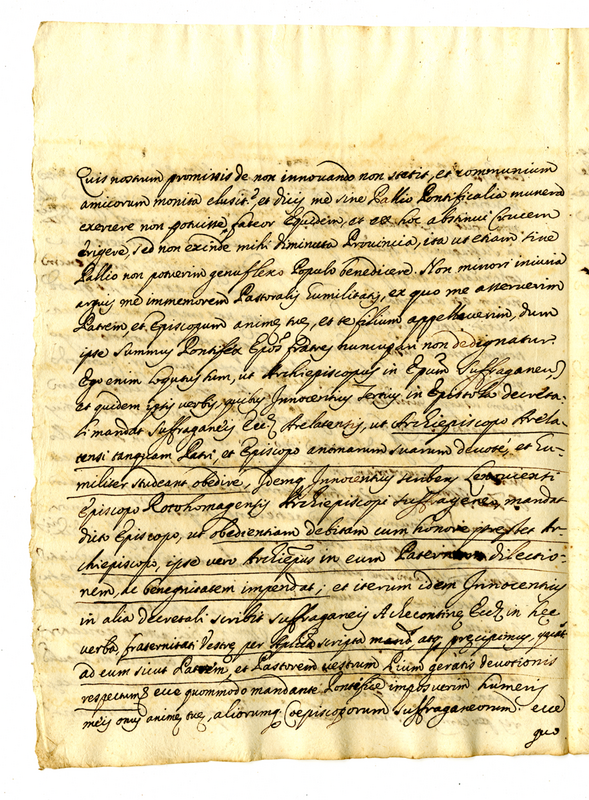 Quis nostrum promissis de non innovando non stetit, et communium
amicorum monita elusit? et dicis me sine Pallio Pontificalia munera
exercere non potuisse fateor Equidem, et ex hoc abstinui Crucem
erigere, sed non exinde mihi diminuta Provincia, ita ut etiam sine
Pallio non potuerim genuflexo Populo benedicere. Non minori iniuria
arguis me immemorem Pastoralis humilitatis, ex quo me asseruerim
Patrem et Episcopum animę tuę, et te filium appellaverim, dum
ipse Summus Pontifex Epos fratres nuncupari non dedignatur.
Ego enim loqutus sum, ut Archiepiscopus in Epum Suffraganeu,
et quidem iptis verbis, quibus Innocentius Tertius in Epistola decreta-
li mandat suffraganeis Eccę Arelatensis, ut Archiepiscopo Arela-
tensi tanquam Patri, et Episcopo animarum suarum devote, et hu-
militer studeant obedire, Idemq Innocentius scribens
Episcopo Rotohomagensis Archiepiscopi suffraganeo, mandat
dicto Episcopo, ut obedientiam debitam cum honore prestet Ar-
chiepiscopo, ipse vero Archiepus in eum Paternam dilectio-
nem, ac benegnitatem impendat; et iterum idem Innocentius
in alia decretali scribit suffraganeis Eccę in hęc
verba, fraternitati Vestrę per scripta mand, atq pręcipimus,
ad eum sicut Patrem, et Pastorem vestrum Pium geratis devotionis
respectum & ecce quommodo mandante Pontifice imposuerim humeris
meis onus animę tuę, aliorumq Coepiscoporum suffraganeorum. ecce
quo